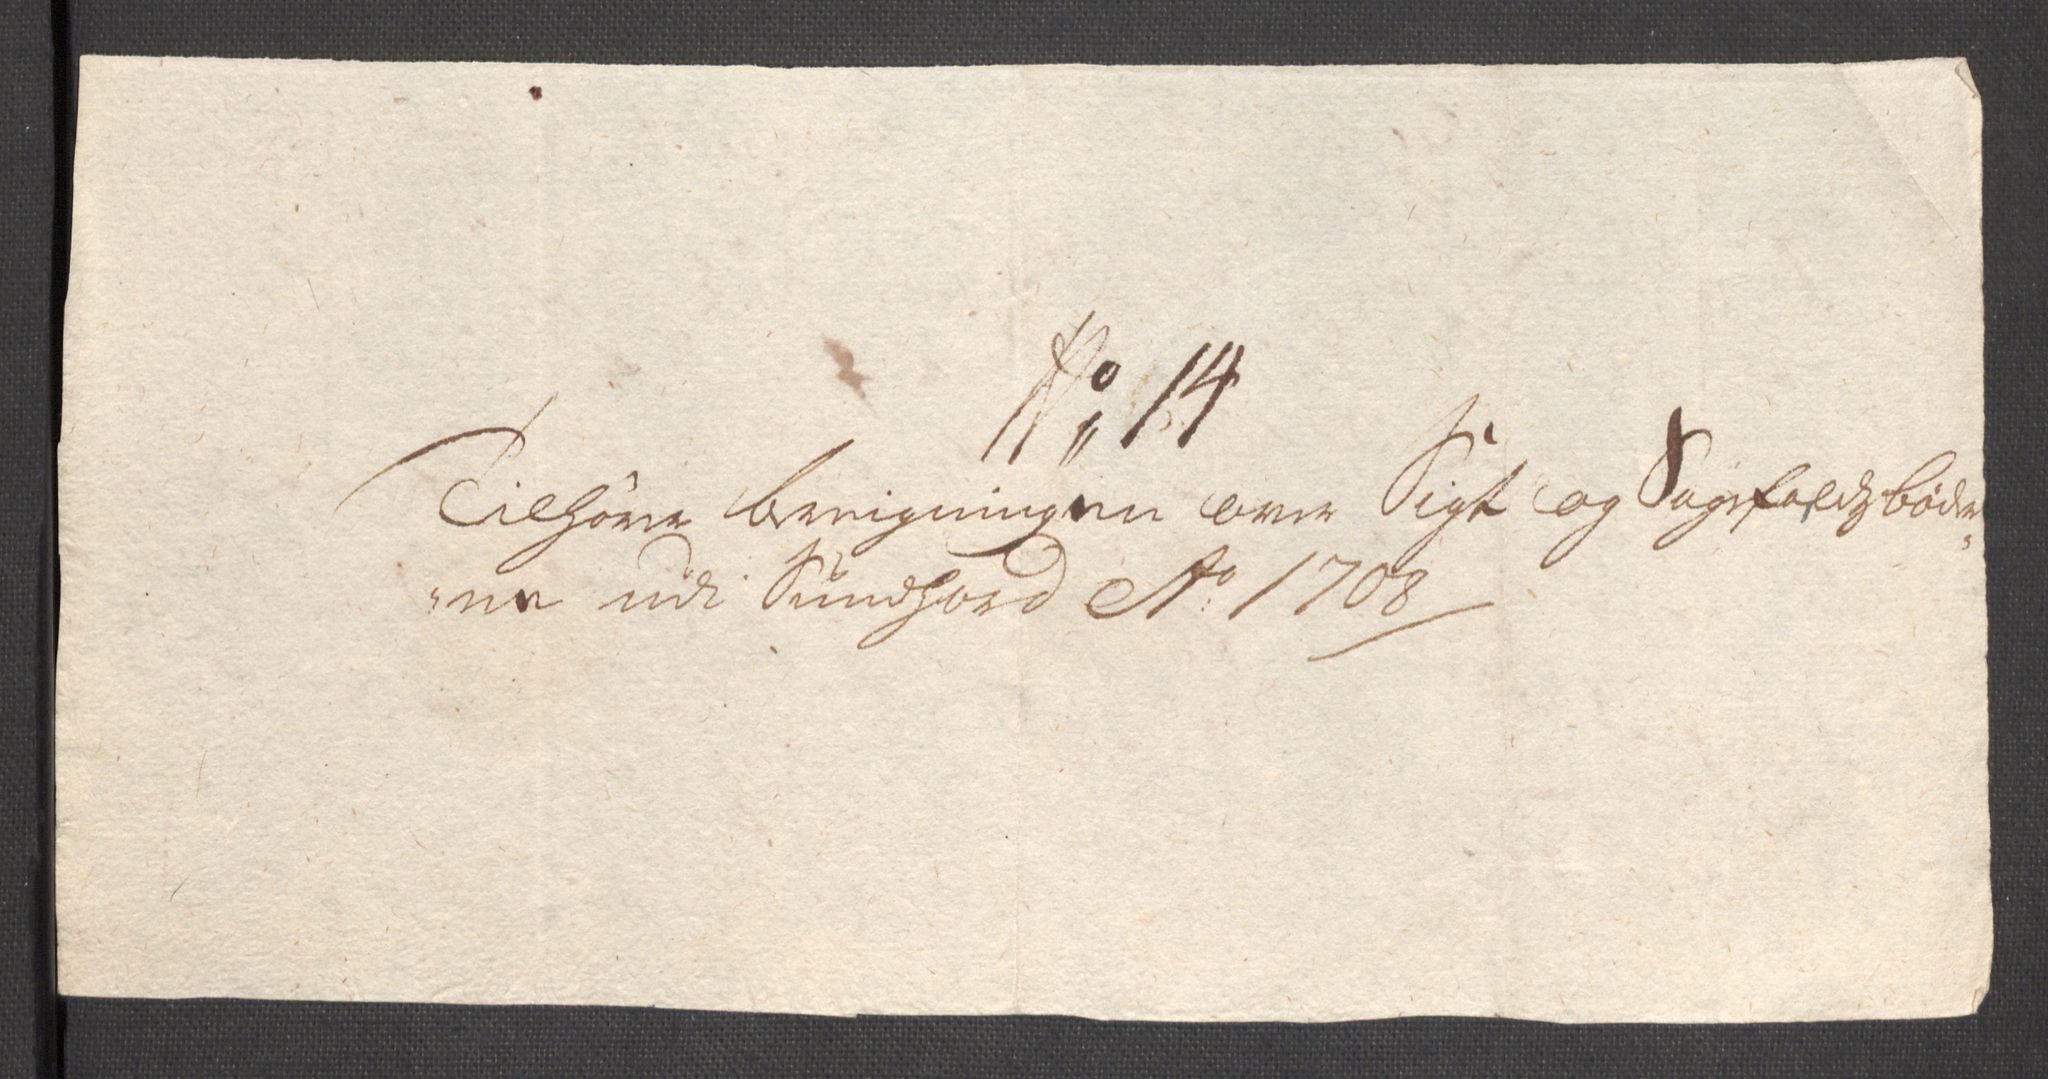 No: 14
Tilhörer bereigningen over Sigt og Sagefaldsbøder=
=ne udi Sundfiord Ao: 1708